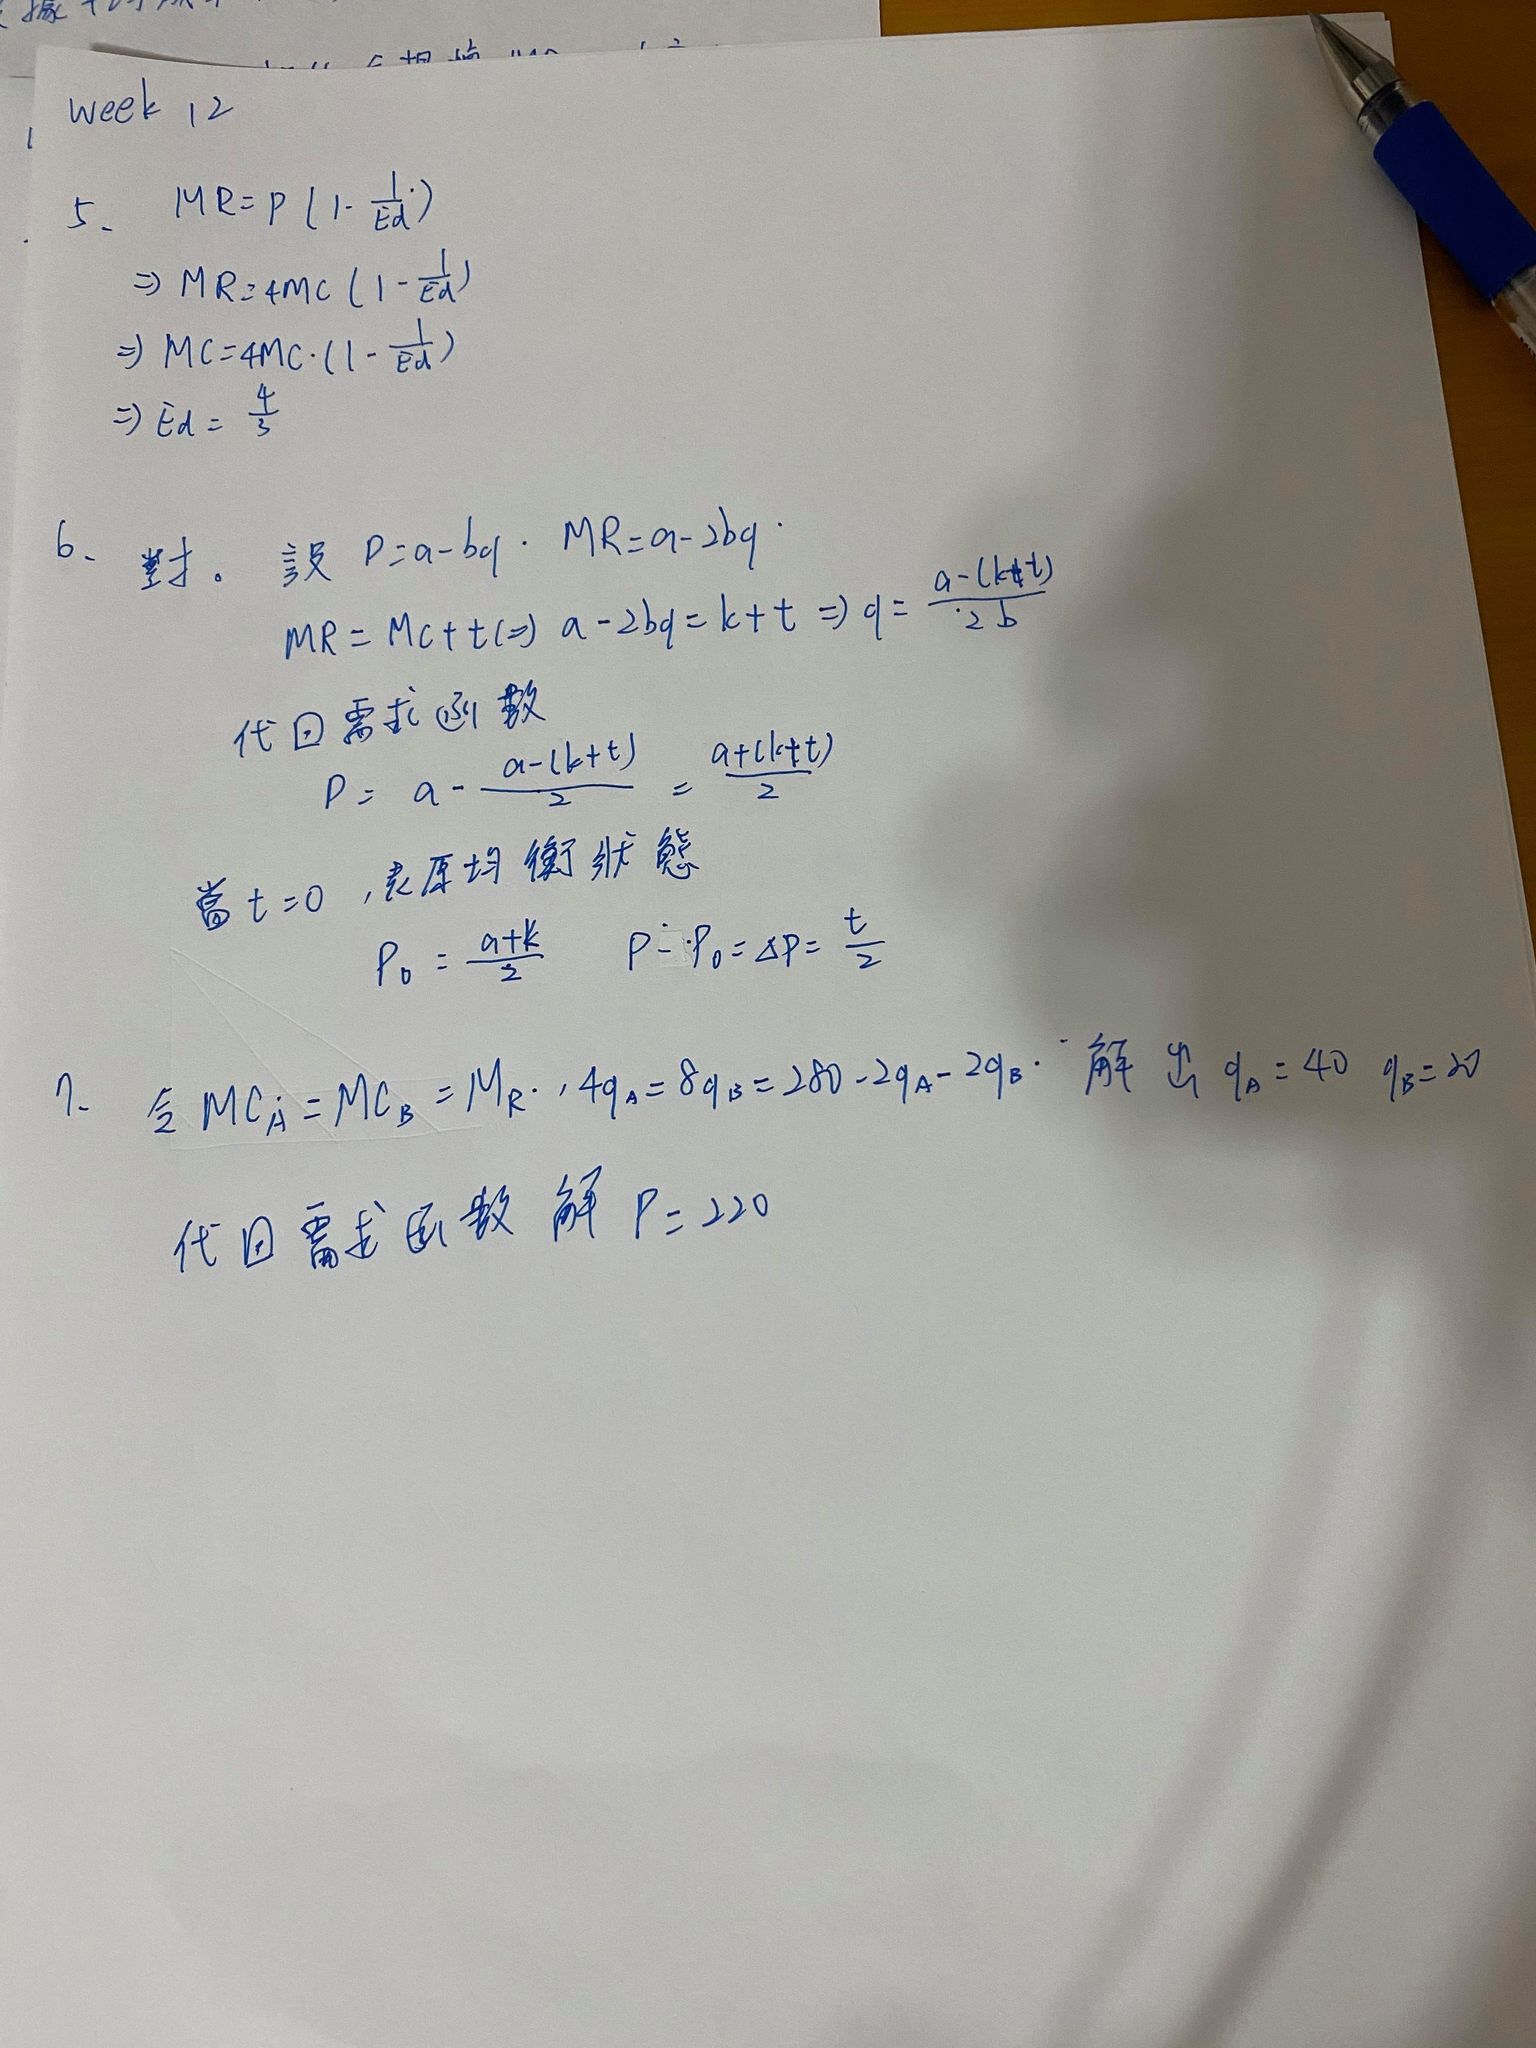 week 12
5. MR=P(1-1/Ed)
⇒ MR=4MC(1-1/Ed)
⇒ MC=4MC·(1-1/Ed)
⇒ Ed=4/3
6. 對。 設 P=a-bq. MR=a-2bq.
MR=MC+t⇒ a-2bq=k+t ⇒ q=(a-(k+t))/2b
代回需求函數
P= a-(a-(k+t))/2 = (a+(k+t))/2
當t=0,表原均衡狀態
P0=(a+k)/2 P-P0=ΔP=t/2
7. 令MCA=MCB=MR.,4qA=8qB=280-2qA-2qB. 解出 qA=40 qB=20
代回需求函數 解 P=220